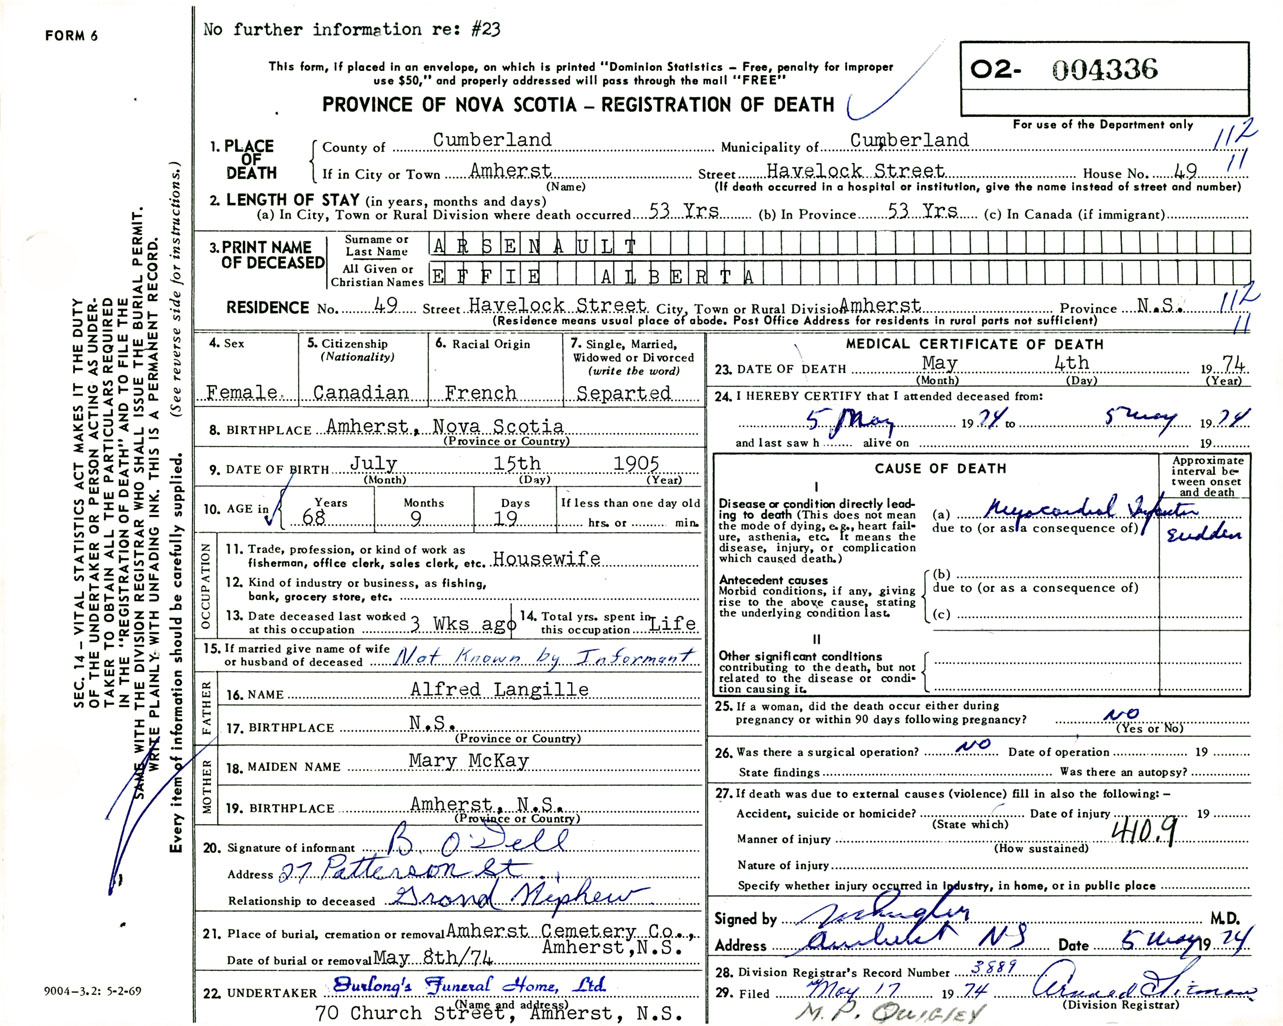 FORM 6
No further information re: #23
This form, if placed in an envelope, on which is printed "Dominion Statistics – Free, penalty for improper
use $50," and properly addressed will pass through the mail "FREE"
PROVINCE OF NOVA SCOTIA – REGISTRATION OF DEATH
02- 004336
For use of the Department only
1. PLACE OF DEATH
County of Cumberland Municipality of Cumberland 112
If in City or Town Amherst Street Havelock Street House No. 49 11
(Name) (If death occurred in a hospital or institution, give the name instead of street and number)
2. LENGTH OF STAY (in years, months and days)
(a) In City, Town or Rural Division where death occurred 53 Yrs (b) In Province 53 Yrs (c) In Canada (if immigrant)
3. PRINT NAME OF DECEASED
Surname or Last Name ARSENAULT
All Given or Christian Names EFFIE ALBERTA
RESIDENCE No. 49 Street Havelock Street City, Town or Rural Division Amherst Province N.S. 112
(Residence means usual place of abode. Post Office Address for residents in rural parts not sufficient) 11
4. Sex Female
5. Citizenship (Nationality) Canadian
6. Racial Origin French
7. Single, Married, Widowed or Divorced (write the word) Separted
8. BIRTHPLACE Amherst, Nova Scotia
(Province or Country)
9. DATE OF BIRTH July 15th 1905
(Month) (Day) (Year)
10. AGE in Years Months Days If less than one day old
68 9 19 hrs. or min.
OCCUPATION
11. Trade, profession, or kind of work as
fisherman, office clerk, sales clerk, etc. Housewife
12. Kind of industry or business, as fishing,
bank, grocery store, etc.
13. Date deceased last worked at this occupation 3 Wks ago
14. Total yrs. spent in this occupation Life
15. If married give name of wife
or husband of deceased Not Known by Informant
FATHER
16. NAME Alfred Langille
17. BIRTHPLACE N.S.
(Province or Country)
MOTHER
18. MAIDEN NAME Mary McKay
19. BIRTHPLACE Amherst, N.S.
(Province or Country)
20. Signature of informant B. O'Dell
Address 27 Patterson St.
Relationship to deceased Grand Niphew
21. Place of burial, cremation or removal Amherst Cemetery Co.,
Amherst,N.S.
Date of burial or removal May 8th/74
22. UNDERTAKER Furlong's Funeral Home, Ltd.
(Name and address)
70 Church Street, Amherst, N.S.
MEDICAL CERTIFICATE OF DEATH
23. DATE OF DEATH May 4th 1974
(Month) (Day) (Year)
24. I HEREBY CERTIFY that I attended deceased from:
5 May 1974 to 5 May 1974
and last saw h alive on 19
CAUSE OF DEATH
Approximate interval between onset and death
I
Disease or condition directly lead-
ing to death (This does not mean
the mode of dying, e.g., heart fail-
ure, asthenia, etc. It means the
disease, injury, or complication
which caused death.)
(a) Myocardial Infarction
due to (or as a consequence of) Sudden
Antecedent causes
Morbid conditions, if any, giving
rise to the above cause, stating
the underlying condition last.
(b)
due to (or as a consequence of)
(c)
II
Other significant conditions
contributing to the death, but not
related to the disease or condi-
tion causing it.
25. If a woman, did the death occur either during
pregnancy or within 90 days following pregnancy? NO
(Yes or No)
26. Was there a surgical operation? NO Date of operation 19
State findings Was there an autopsy?
27. If death was due to external causes (violence) fill in also the following: –
Accident, suicide or homicide? Date of injury 19
(State which)
Manner of injury 410.9
(How sustained)
Nature of injury
Specify whether injury occurred in Industry, in home, or in public place
Signed by M.D.
Address Amherst NS Date 5 May 1974
28. Division Registrar's Record Number 3889
29. Filed May 17 1974
(Division Registrar)
M. P. QUIGLEY
SEC. 14 – VITAL STATISTICS ACT MAKES IT THE DUTY
OF THE UNDERTAKER OR PERSON ACTING AS UNDER-
TAKER TO OBTAIN ALL THE PARTICULARS REQUIRED
IN THE "REGISTRATION OF DEATH" AND TO FILE THE
SAME WITH THE DIVISION REGISTRAR WHO SHALL ISSUE THE BURIAL PERMIT.
WRITE PLAINLY WITH UNFADING INK. THIS IS A PERMANENT RECORD.
Every item of information should be carefully supplied. (See reverse side for instructions.)
9004-3.2: 5-2-69